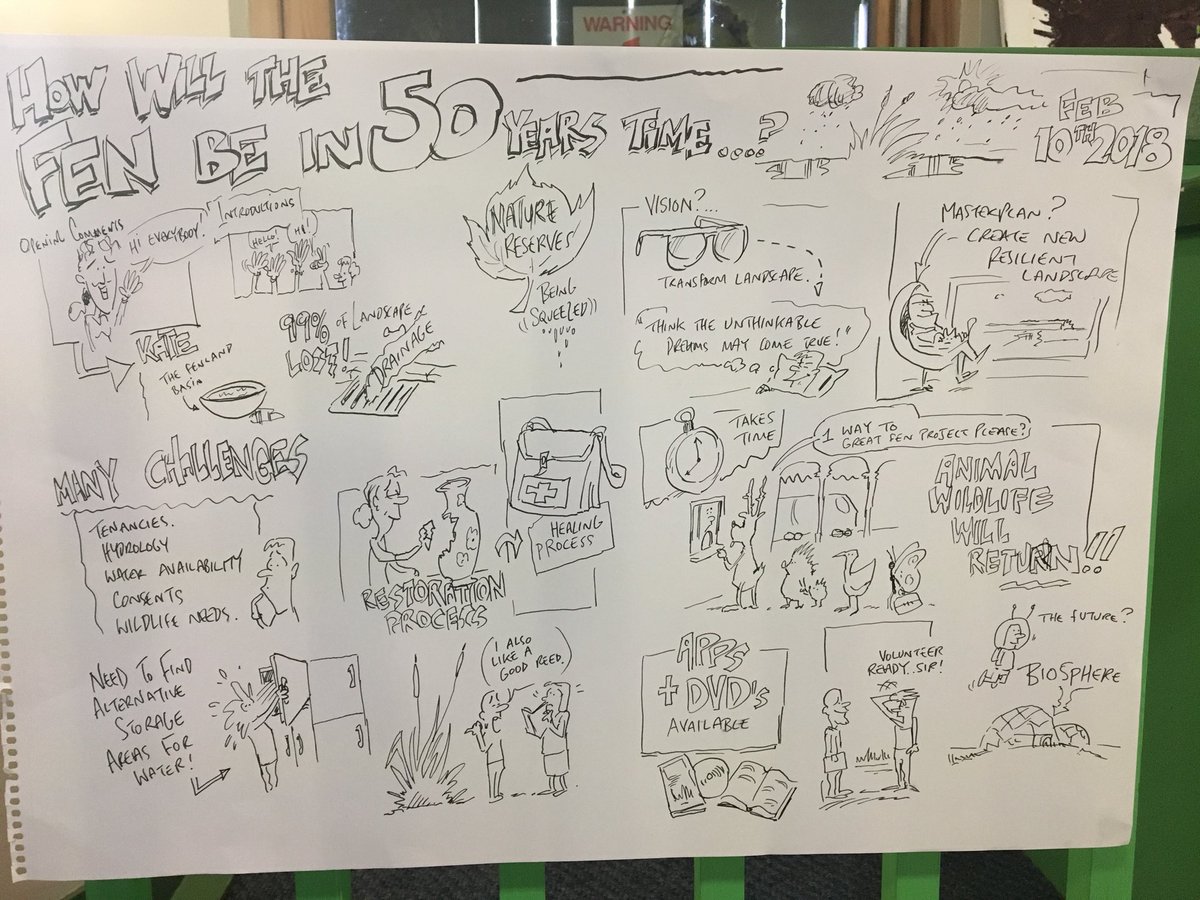 WARNING
HOW WILL THE
FEN BE IN 50 YEARS TIME....?
FEB
10TH 2018
OPENING COMMENTS
HI EVERYBODY!
INTRODUCTIONS
HELLO!
HI!
KATE
THE FENLAND
BASIN
99% OF LANDSCAPE
LOST!
DRAINAGE
NATURE
RESERVES
BEING
((SQUEEZED))
VISION?...
TRANSFORM LANDSCAPE.
"THINK THE UNTHINKABLE
DREAMS MAY COME TRUE!"
MASTERPLAN?
CREATE NEW
RESILIENT
LANDSCAPE
MANY CHALLENGES
TENANCIES.
HYDROLOGY
WATER AVAILABILITY
CONSENTS
WILDLIFE NEEDS.
RESTORATION
PROCESS
HEALING
PROCESS
TAKES
TIME
1 WAY TO
GREAT FEN PROJECT PLEASE?
ANIMAL
WILDLIFE
WILL
RETURN..!!
NEED TO FIND
ALTERNATIVE
STORAGE
AREAS FOR
WATER!
I ALSO
LIKE A
GOOD REED.
APPS
+ DVD's
AVAILABLE
VOLUNTEER
READY..SIR!
THE FUTURE?
BIOSPHERE